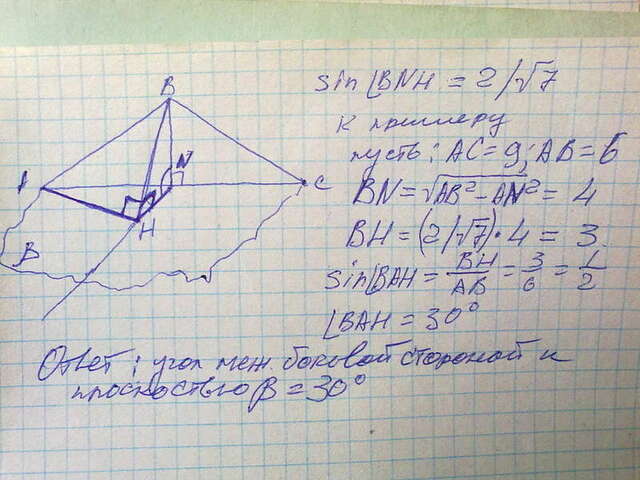 sin∠BNH = 2/√7
К примеру
пусть: AC = 9; AB = 6
BN = √AB² - AN² = 4
BH = (2/√7) · 4 = 3
sin∠BAH = BH/AB = 3/6 = 1/2
∠BAH = 30°
B
N
C
H
B
Ответ: угол меж. боковой стороной и
плоскостью β = 30°